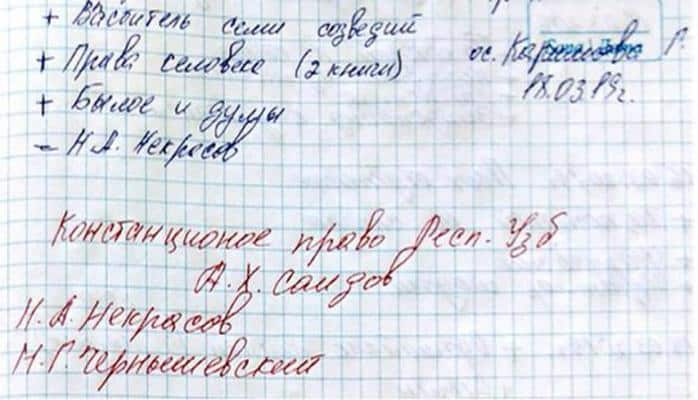 + Васбитель семи созведий
+ Права человека (2 книги)
ос. Каримова Г.
+ Былое и думы
18.03.19г.
- Н.А. Некрасов
Констанционое право Респ. Узб
А.Х. Саидов
Н.А. Некрасов
Н.Г. Чернышевский